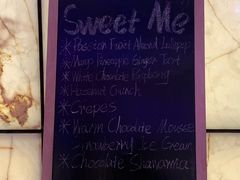 Sweet Me
*Passion Fruit Almond Lollipop
*Mango Pineapple Ginger Tart
*White Chocolate Raspberry
*Hazelnut Crunch
*Crepes
*Warm Chocolate Mousse
Strawberry Ice Cream
*Chocolate